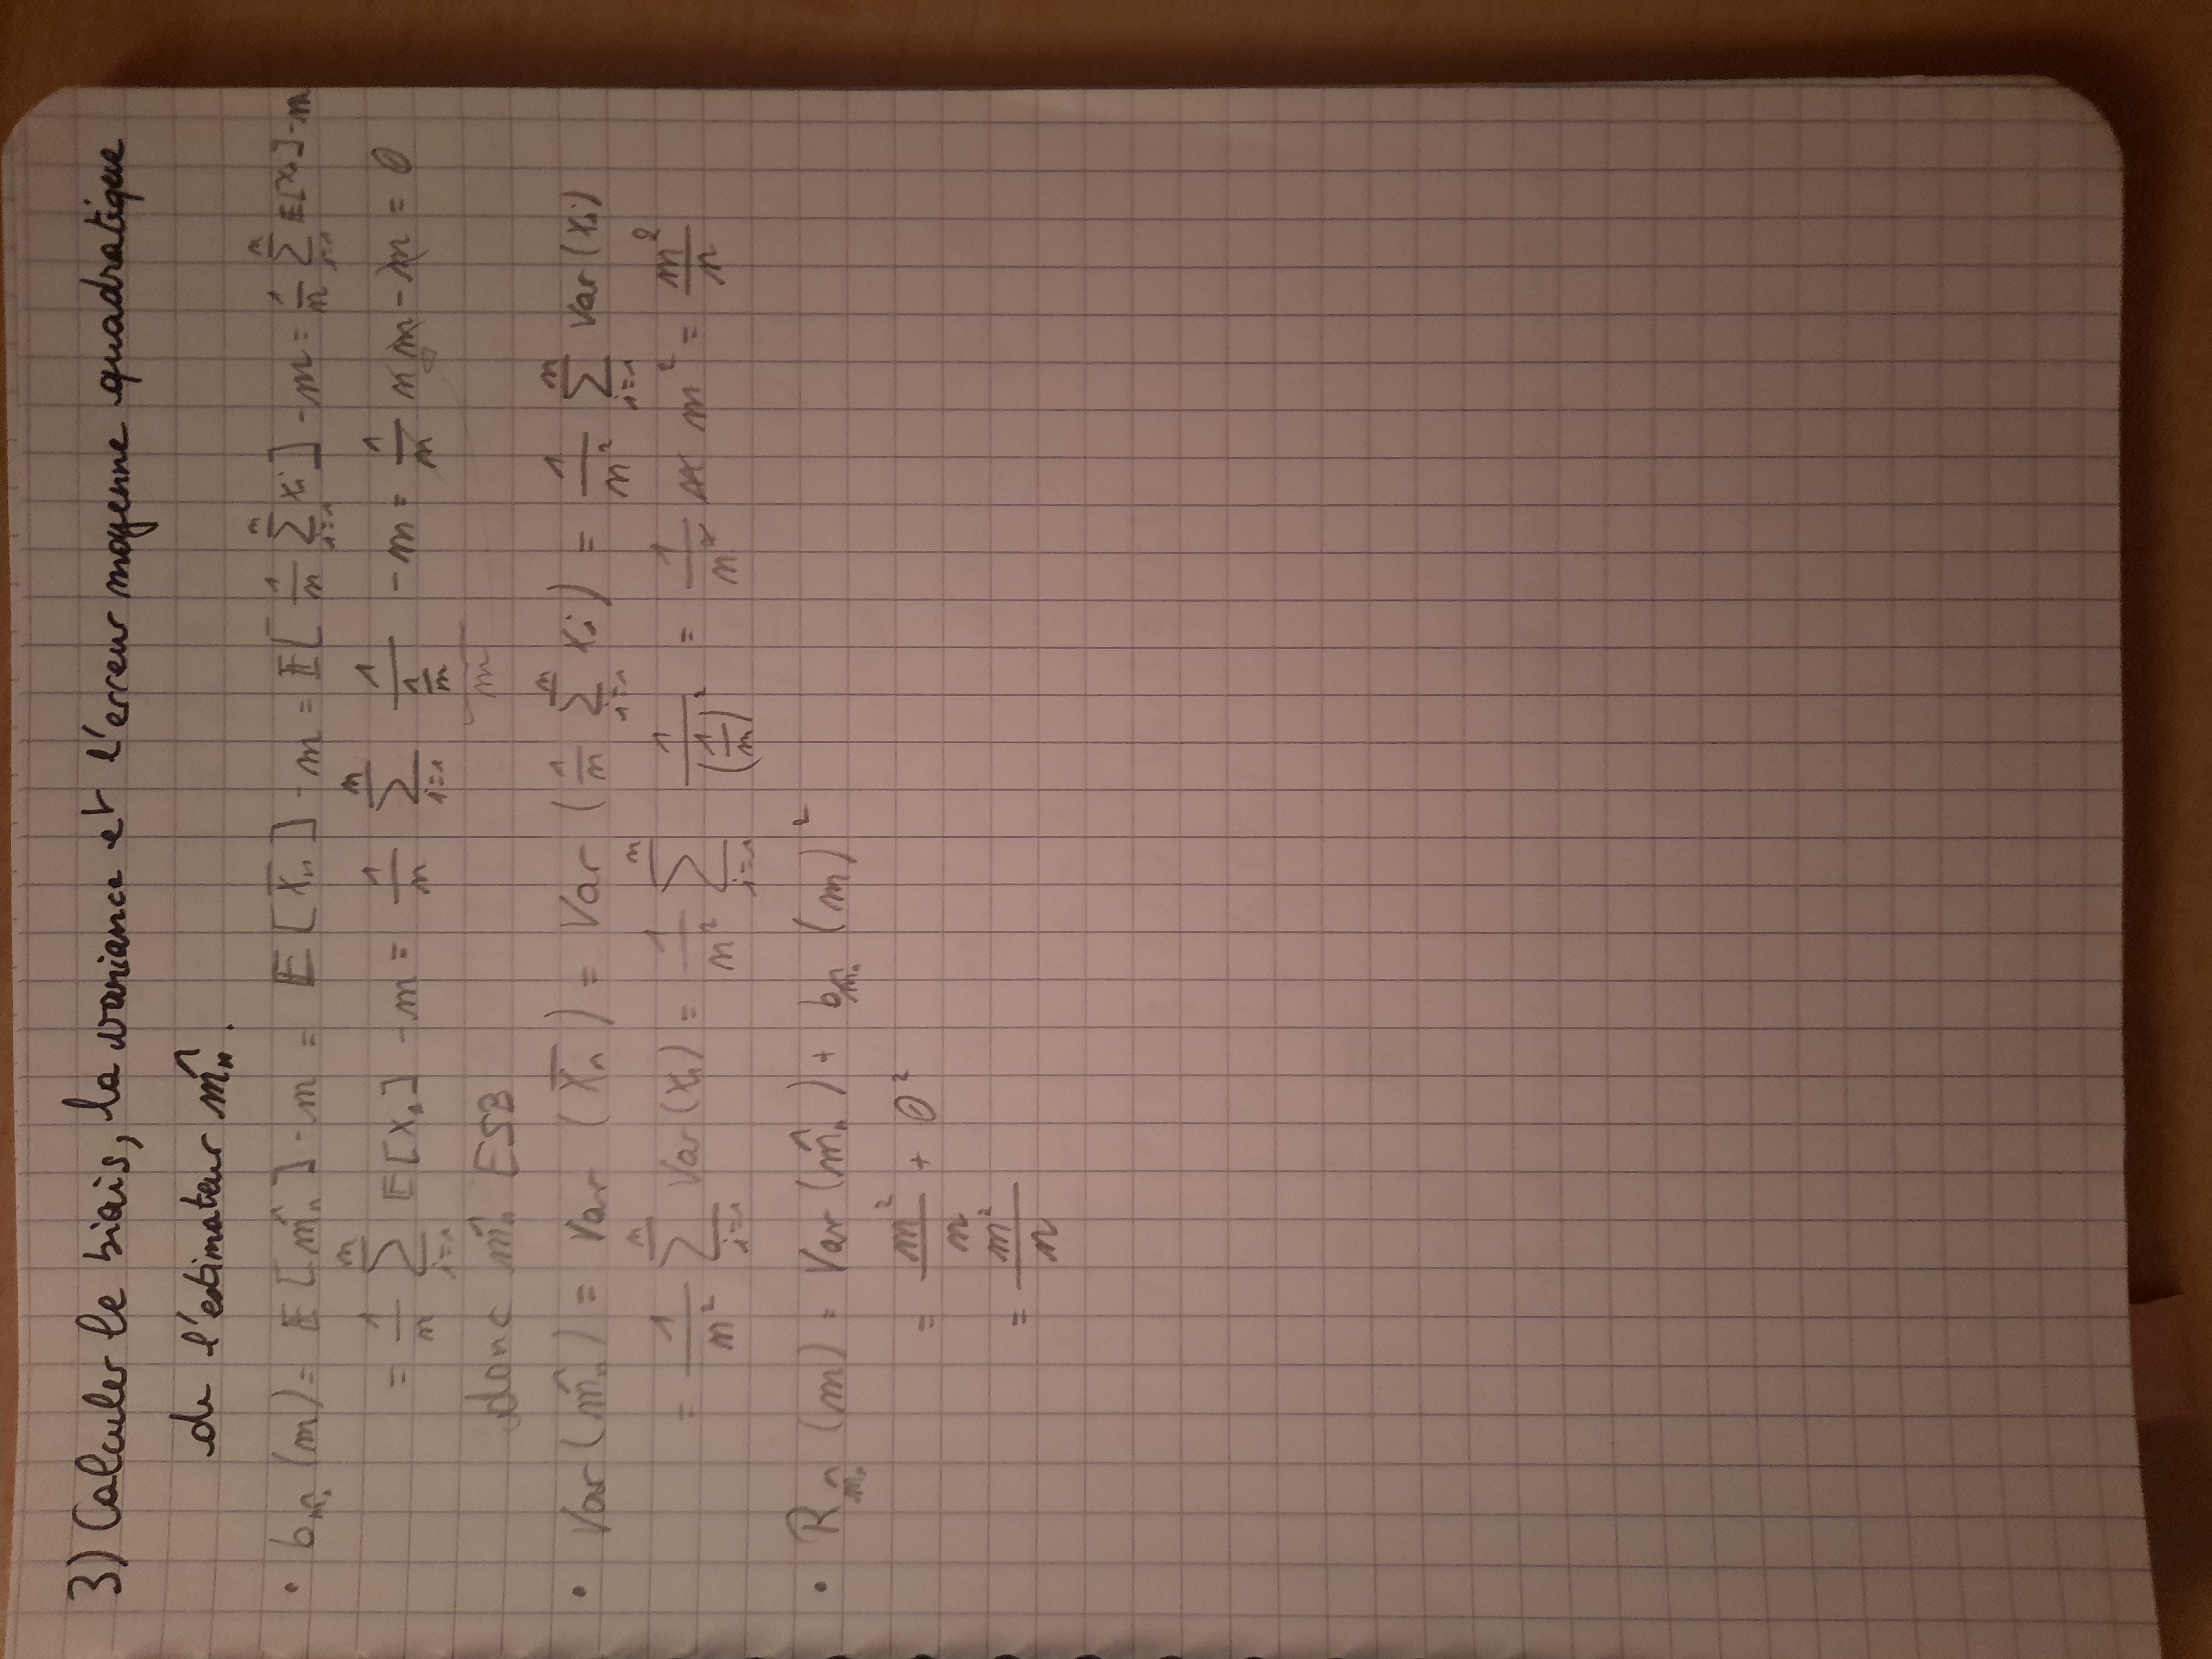 3) Calculer le biais, la variance et l'erreur moyenne quadratique
de l'estimateur m̂ₙ.
• b_m̂ₙ (m) = 𝔼[m̂ₙ] - m = 𝔼[X̄ₙ] - m = 𝔼[1/n ∑_{i=1}^n Xᵢ] - m = 1/n ∑_{i=1}^n 𝔼[Xᵢ] - m
= 1/n ∑_{i=1}^n 𝔼[X₁] - m = 1/n ∑_{i=1}^n 1/(1/m) - m = 1/n n m - m = 0
m
donc m̂ₙ ESB
• Var(m̂ₙ) = Var(X̄ₙ) = Var(1/n ∑_{i=1}^n Xᵢ) = 1/n² ∑_{i=1}^n Var(Xᵢ)
= 1/n² ∑_{i=1}^n Var(X₁) = 1/n² ∑_{i=1}^n 1/(1/m)² = 1/n² n m² = m²/n
• R_m̂ₙ (m) = Var(m̂ₙ) + b_m̂ₙ (m)²
= m²/n + 0²
= m²/n